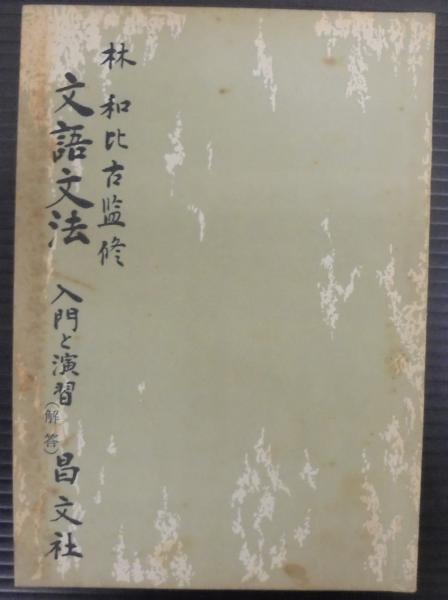 林 和比古監修
文語文法 入門と演習(解答) 昌文社